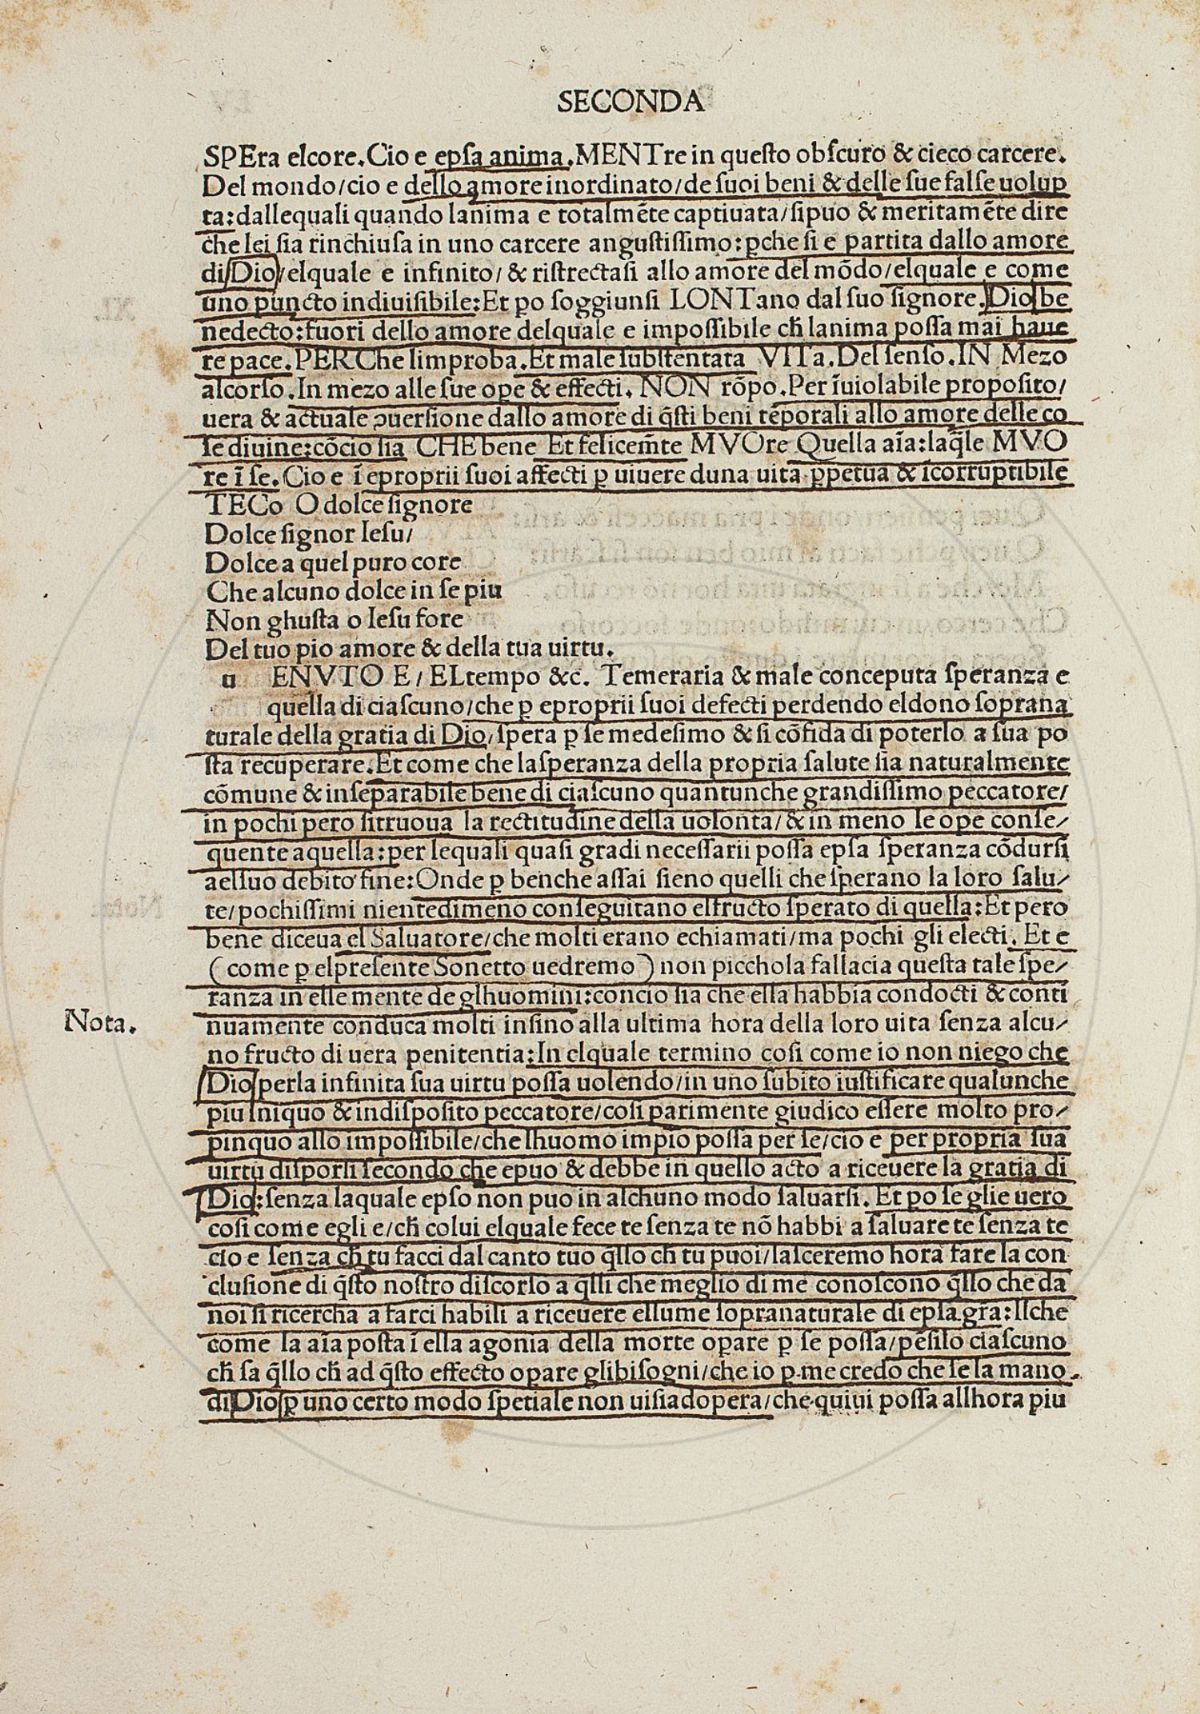 SECONDA
SPEra elcore. Cio e epſa anima. MENTre in queſto obſcuro & cieco carcere.
Del mondo/cio e dello amore inordinato/de ſuoi beni & delle ſue falſe uolup
ta: dallequali quando lanima e totalmēte captiuata/ſipuo & meritamēte dire
che lei ſia rinchiuſa in uno carcere anguſtiſſimo: ꝑche ſi e partita dallo amore
di Dio/elquale e infinito/& riſtrectaſi allo amore del mōdo/elquale e come
uno pūcto indiuiſibile: Et ꝑo ſoggiunſi LONTano dal ſuo ſignore. Dio be
nedecto: fuori dello amore delquale e impoſſibile ch̄ lanima poſſa mai haue
re pace. PERChe limproba. Et male ſubſtentata VITa. Del ſenſo. IN Mezo
alcorſo. In mezo alle ſue oꝑe & effecti. NON rōpo. Per īuiolabile propoſito/
uera & actuale ꝯuerſione dallo amore di q̄ſti beni tēporali allo amore delle co
ſe diuine: cōcio ſia CHE bene Et felicem̄te MVOre Quella aīa: laq̄le MVO
re ī ſe. Cio e ī eproprii ſuoi affecti ꝑ uiuere duna uita ꝑpetua & īcorruptibile
TECo O dolce ſignore
Dolce ſignor Ieſu/
Dolce a quel puro core
Che alcuno dolce in ſe piu
Non ghuſta o Ieſu fore
Del tuo pio amore & della tua uirtu.
u ENVTO E/ ELtempo &c. Temeraria & male conceputa ſperanza e
quella di ciaſcuno/che ꝑ eproprii ſuoi defecti perdendo eldono ſoprana
turale della gratia di Dio, ſpera ꝑ ſe medeſimo & ſi cōfida di poterlo a ſua po
ſta recuperare. Et come che la ſperanza della propria ſalute ſia naturalmente
cōmune & inſeparabile bene di ciaſcuno quantunche grandiſſimo peccatore/
in pochi pero ſitruoua la rectitudine della uolonta/& in meno le oꝑe conſe/
quente aquella: per lequali quaſi gradi neceſſarii poſſa epſa ſperanza cōdurſi
aelſuo debito fine: Onde ꝑ benche aſſai ſieno quelli che ſperano la loro ſalu/
te/pochiſſimi nientedimeno conſeguitano elfructo ſperato di quella: Et pero
bene diceua el Saluatore/che molti erano echiamati/ma pochi gli electi. Et e
(come ꝑ elpreſente Sonetto uedremo) non picchola fallacia queſta tale ſpe/
ranza in elle mente de glhuomini: concio ſia che ella habbia condocti & conti
Nota.
nuamente conduca molti inſino alla ultima hora della loro uita ſenza alcu/
no fructo di uera penitentia: In elquale termino coſi come io non niego che
Dio perla infinita ſua uirtu poſſa uolendo/in uno ſubito iuſtificare qualunche
piu iniquo & indiſpoſito peccatore/coſi parimente giudico eſſere molto pro/
pinquo allo impoſſibile/che lhuomo impio poſſa per ſe/cio e per propria ſua
uirtu diſporſi ſecondo che epuo & debbe in quello acto a riceuere la gratia di
Dio: ſenza laquale epſo non puo in alchuno modo ſaluarſi. Et ꝑo ſe glie uero
coſi come egli e/ch̄ colui elquale fece te ſenza te nō habbi a ſaluare te ſenza te
cio e ſenza ch̄ tu facci dal canto tuo q̄llo ch̄ tu puoi/laſceremo hora fare la con
cluſione di q̄ſto noſtro diſcorſo a q̄lli che meglio di me conoſcono q̄llo che da
noi ſi ricercha a farci habili a riceuere ellume ſopranaturale di epſa gr̄a: Ilche
come la aīa poſta ī ella agonia della morte oꝑare ꝑ ſe poſſa/pēſilo ciaſcuno
ch̄ ſa q̄llo ch̄ ad q̄ſto effecto oꝑare gli biſogni/che io ꝑ me credo che ſe la mano
di Dio ꝑ uno certo modo ſpetiale non uiſiadopera/che quiui poſſa allhora ꝑiu